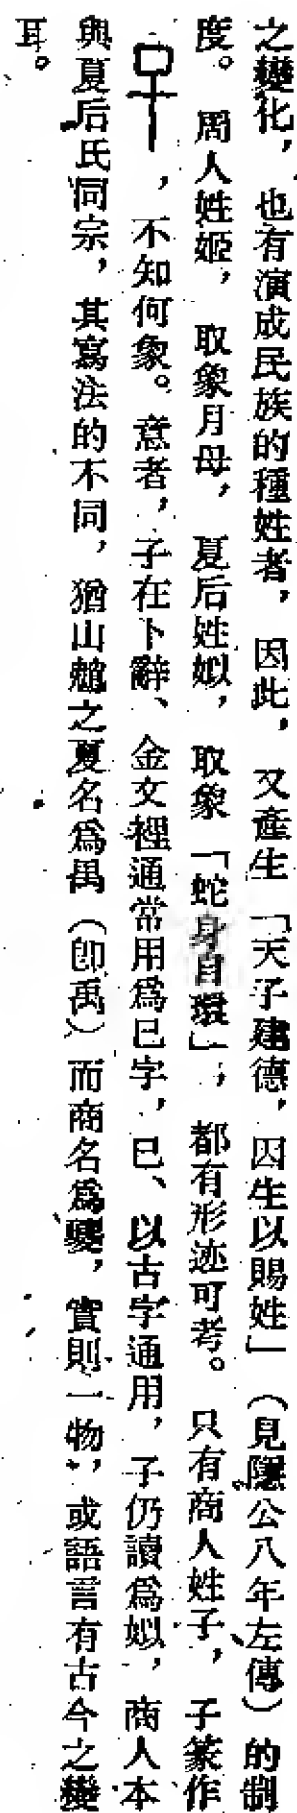 之變化，也有演成民族的種姓者，因此，又產生「天子建德，因生以賜姓」（見隱公八年左傳）的制
度。周人姓姬，取象月母，夏后姓姒，取象「蛇身自環」，都有形迹可考。只有商人姓子，子篆作
，不知何象。意者，子在卜辭、金文裡通常用爲巳字，巳、以古字通用，子仍讀爲姒，商人本
與夏后氏同宗，其寫法的不同，猶山魈之夏名爲禺（卽禹）而商名爲夔，實則一物，或語言有古今之變
耳。